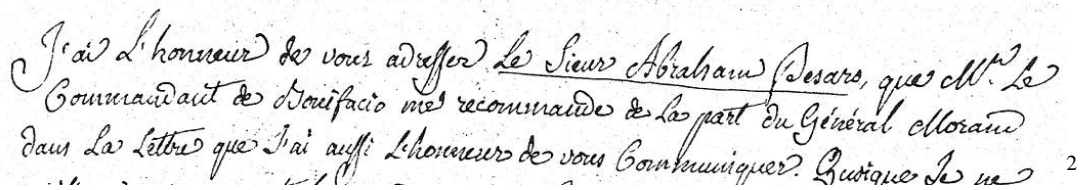 J'ai L'honneur de vous adresser Le Sieur Abraham Pesaro, que Mr. Le
Commandant de Bonifacio me recommande de La part du Général Morand
dans La Lettre que J'ai aussi L'honneur de vous Communiquer. Quoique Je ne
2